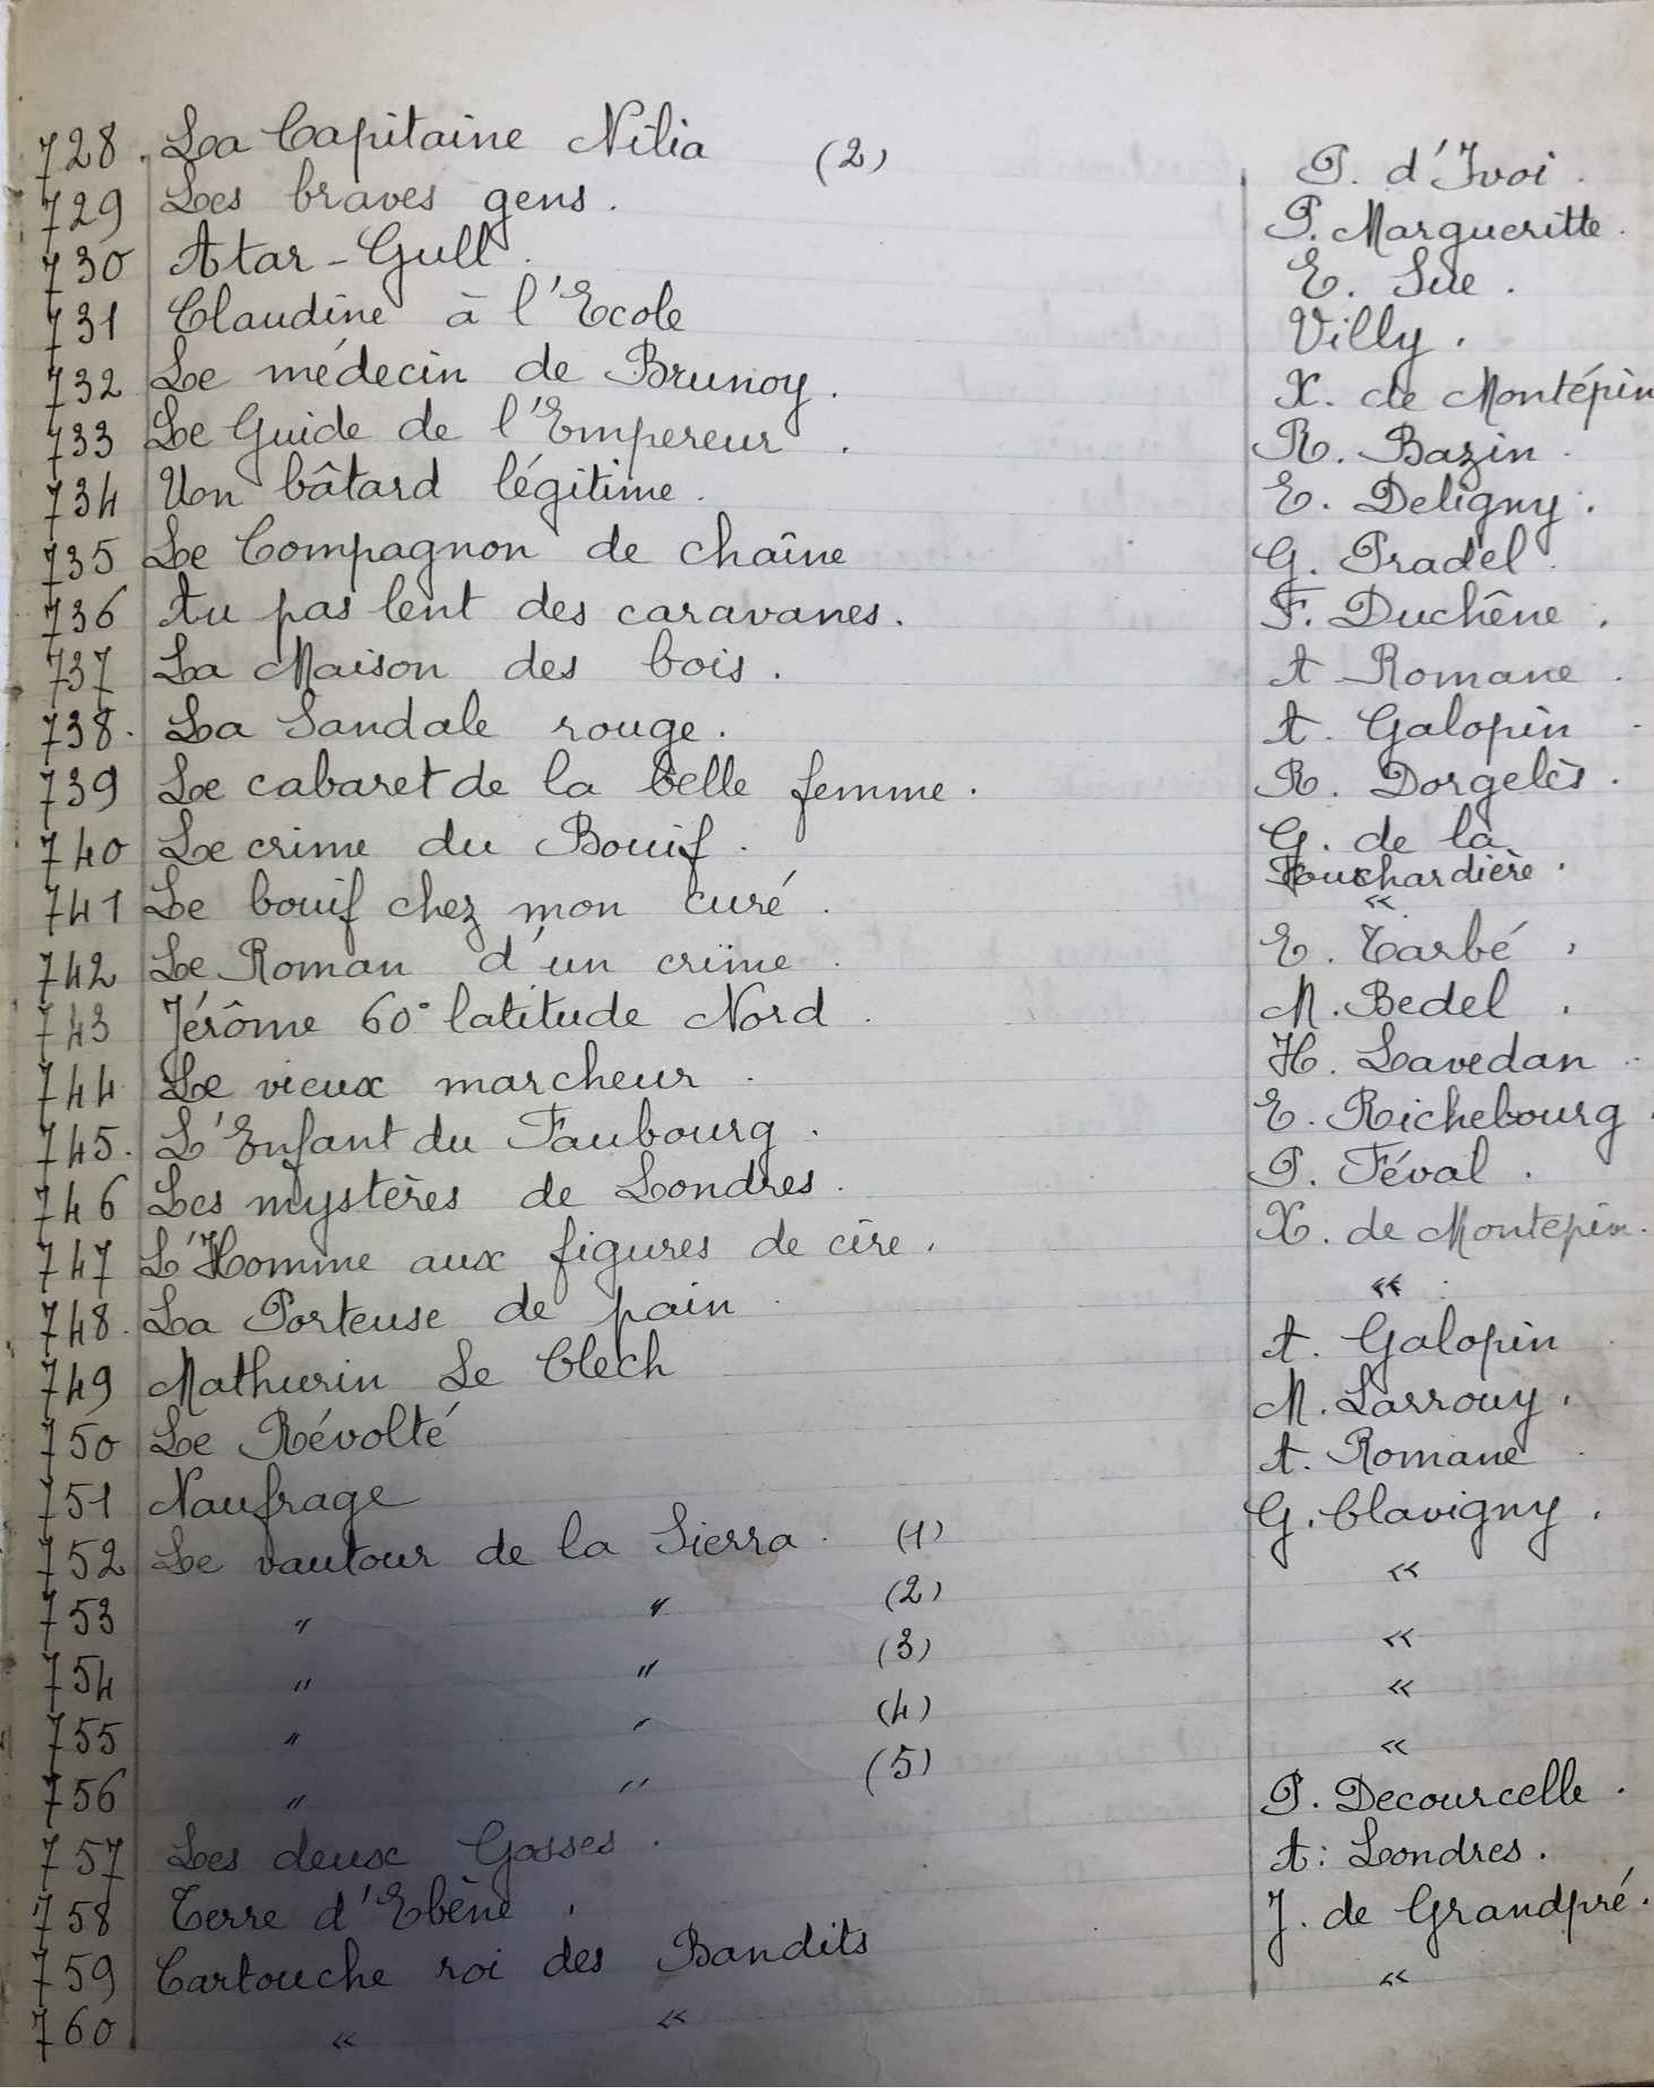 728. La Capitaine Nilia (2) P. d'Ivoi.
729 Les braves gens. P. Margueritte.
730 Atar-Gull. E. Sue.
731 Claudine à l'Ecole Villy.
732 Le médecin de Brunoy. X. de Montépin
733 Le Guide de l'Empereur. R. Bazin.
734 Un bâtard légitime. E. Deligny.
735 Le Compagnon de chaîne G. Pradel.
736 Au pas lent des caravanes. F. Duchêne.
737 La Maison des bois. A Romane.
738. La Sandale rouge. A. Galopin
739 Le cabaret de la belle femme. R. Dorgelès.
740 Le crime du Bouif. G. de la
Fouchardière.
741 Le bouif chez mon curé. «
742 Le Roman d'un crime. E. Tarbé.
743 Jérôme 60° latitude Nord. M. Bedel.
744 Le vieux marcheur. H. Lavedan.
745. L'Enfant du Faubourg. E. Richebourg.
746 Les mystères de Londres. P. Féval.
747 L'Homme aux figures de cire. X. de Montepin.
748. La Porteuse de pain. «
749 Mathurin Le Clech A. Galopin
750 Le Révolté M. Larrouy.
751 Naufrage A. Romane
752 Le vautour de la Sierra. (1) G. Clavigny.
753 " " (2) «
754 " " (3) «
755 " " (4) «
756 " " (5) «
757 Les deux Gosses. P. Decourcelle.
758 Terre d'Ebène. A: Londres.
759 Cartouche roi des Bandits J. de Grandpré.
760 « « «